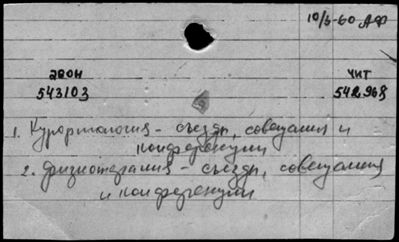 10/3-60 АФ
авон чит
543103 542968
1. Курортология - съезды, совещания и
конференции
2. Физиотерапия - съезды, совещания
и конференции